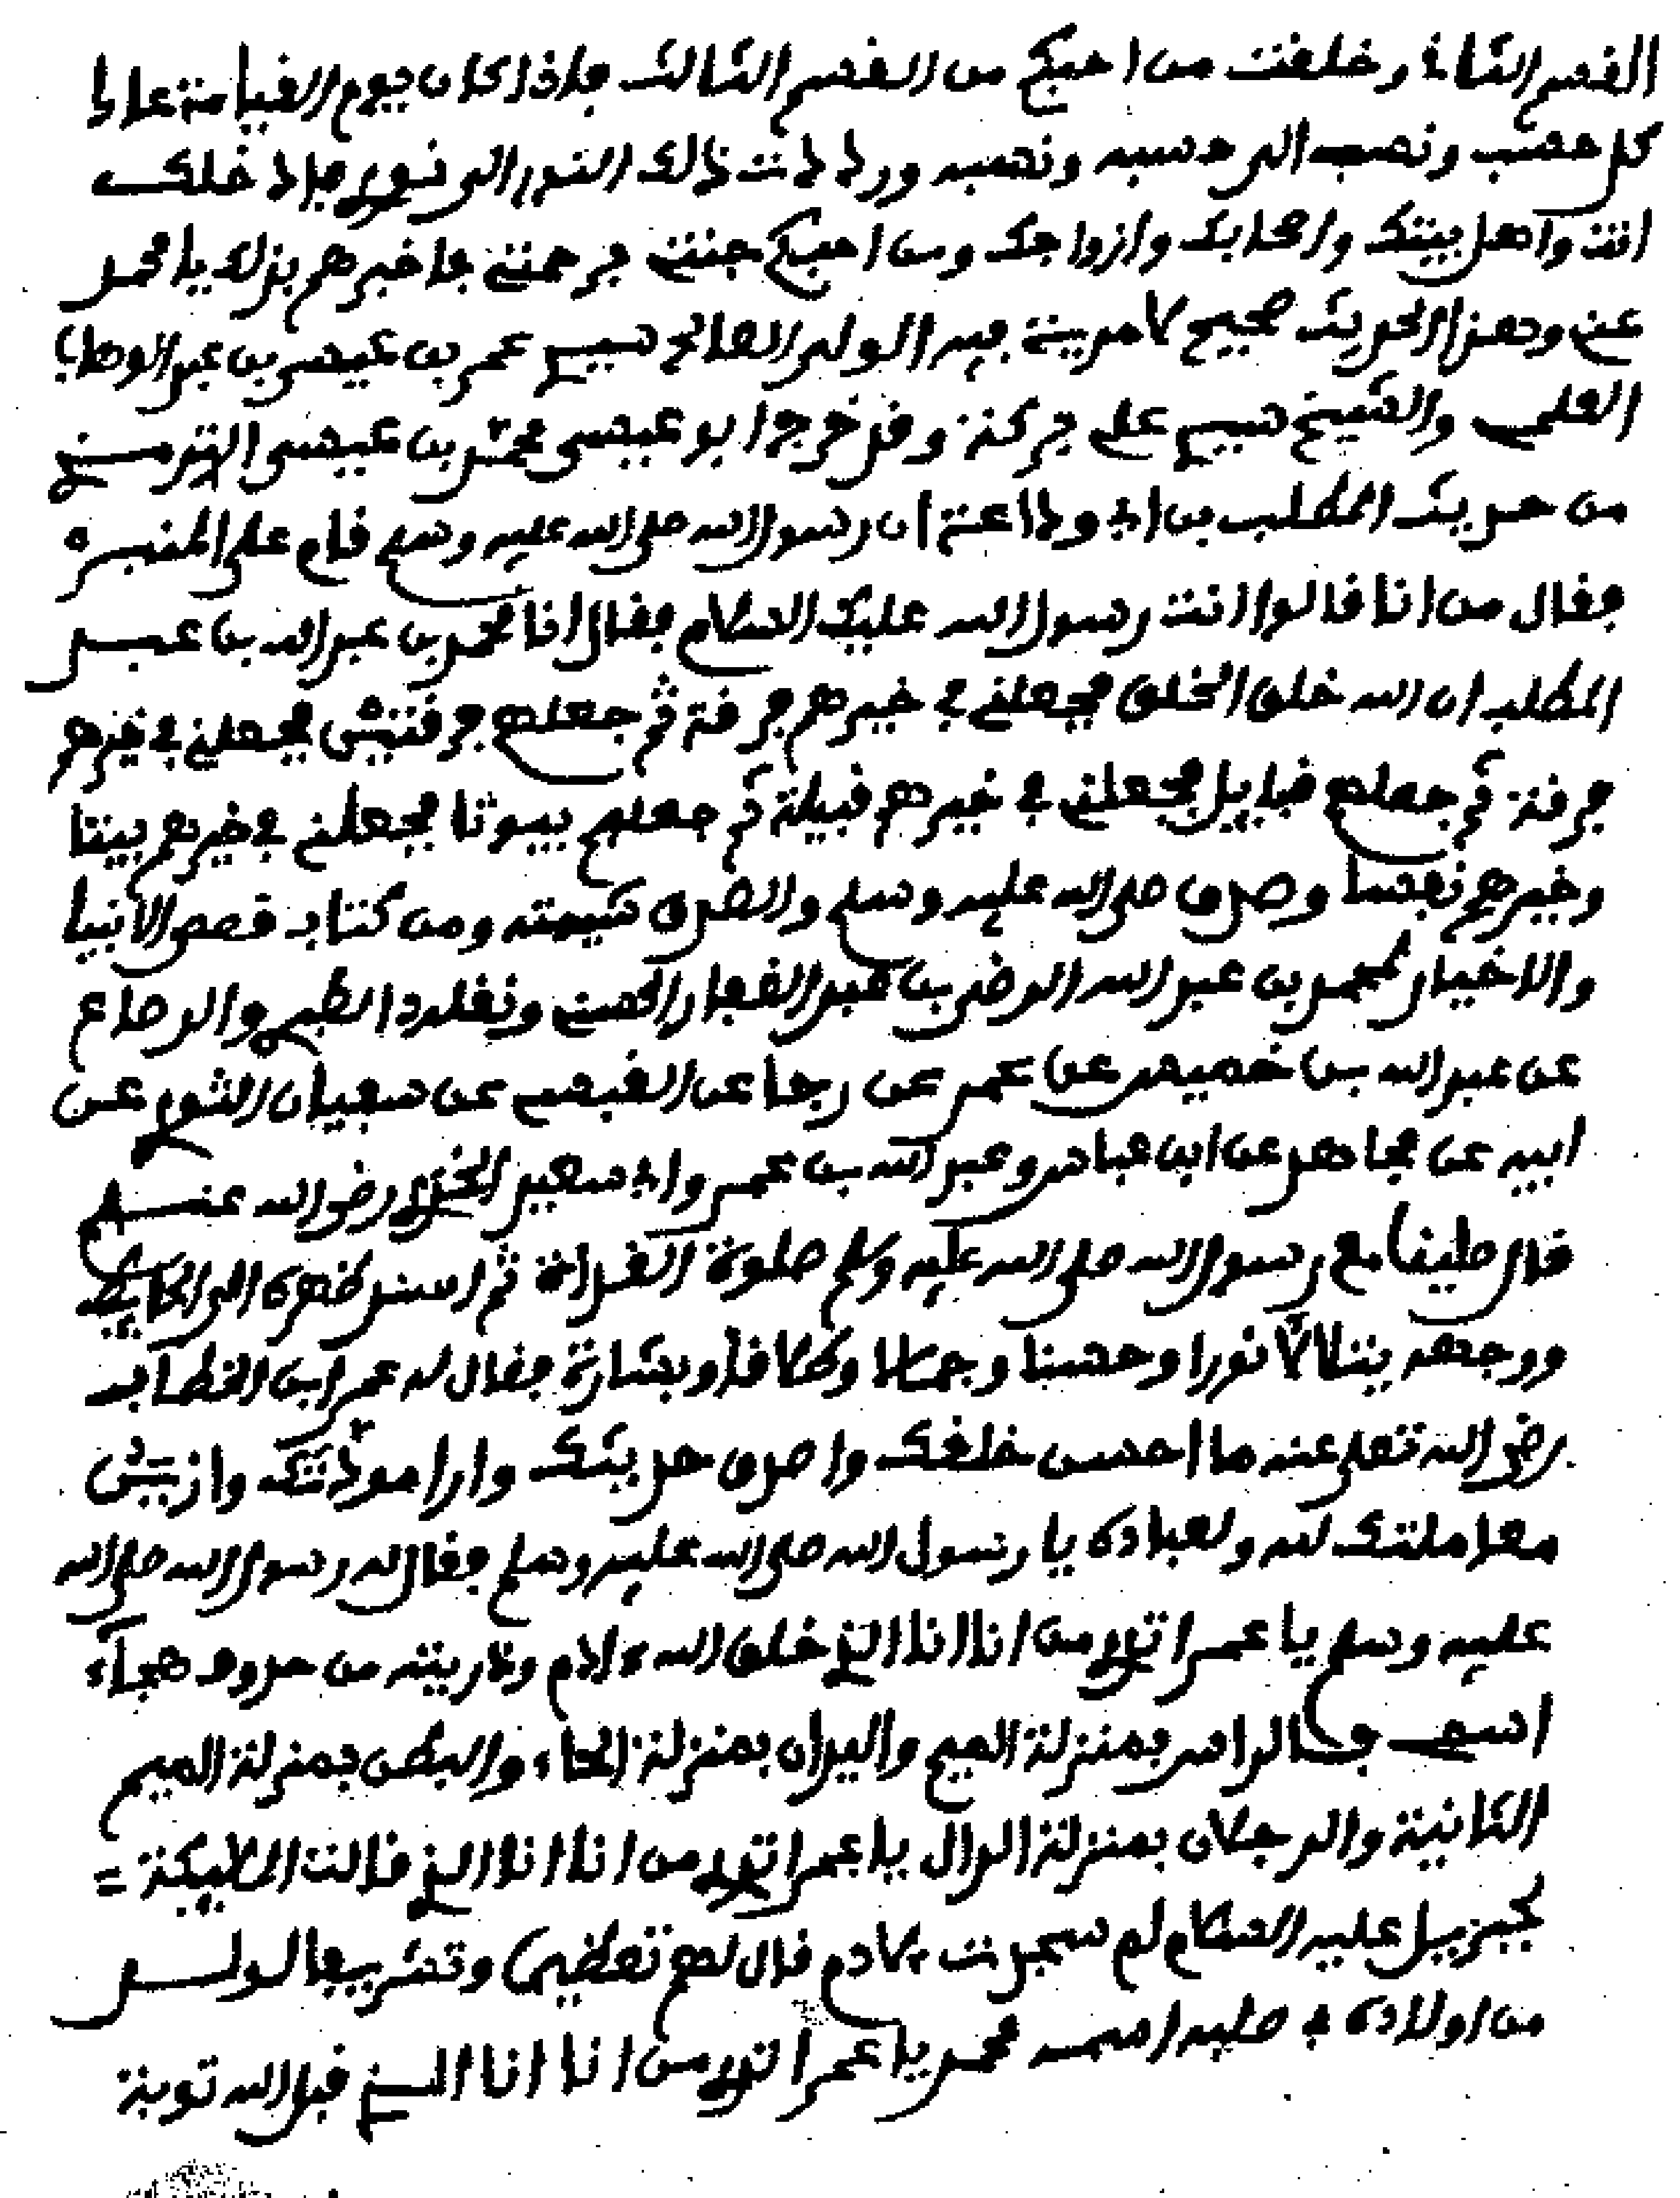 القسم الثاني وخلقت من احبكم من القسم الثالث فاذا كان يوم القيامة عاد
كل حسب ونسب الى حسبه ونسبه ورددت ذلك النور الى نوري فادخلك
انت واهل بيتك واصحابك وازواجك ومن احبكم جنتي برحمتي فاخبرهم بذلك يا محمد
عني وهذا الحديث صحيح لا مرية فيه الولي الصالح سيدي عمر بن عيسى بن عبد الوهاب
العلمي والشيخ سيدي علي بركة وقد خرج ابو عيسى محمد بن عيسى الترمذي
من حديث المطلب بن ابي وداعة ان رسول الله صلى الله عليه وسلم قام على المنبر
فقال من انا قالوا انت رسول الله عليك السلام فقال انا محمد بن عبد الله بن عبد
المطلب ان الله خلق الخلق فجعلني في خيرهم فرقة ثم جعلهم فرقتين فجعلني في خيرهم
فرقة ثم جعلهم قبايل فجعلني في خيرهم قبيلة ثم جعلهم بيوتا فجعلني في خيرهم بيتا
وخيرهم نفسا وصدق صلى الله عليه وسلم والصدق شيمته ومن كتاب قصص الانبيا
والاخيار لمحمد بن عبد الله الرضي بن عبد الغفار الحسني ونقله الطبري والرصاع
عن عبد الله بن عمر عن رجا عن سفيان الثوري عن
ابيه عن مجاهد عن ابن عباس وعبد الله بن عمر وابي سعيد الخدري رضي الله عنهم
قال صلينا مع رسول الله صلى الله عليه وسلم صلوة الغداة ثم اسند ظهره الى الحايط
ووجهه يتلالا نورا وحسنا وجمالا وبشارة فقال له عمر ابن الخطاب
رضي الله تعلى عنه ما احسن خلقك واصدق حديثك وازين
معاملتك لله ولعباده يا رسول الله صلى الله عليه وسلم فقال له رسول الله صلى الله
عليه وسلم يا عمر اتدري من انا انا الذي خلق الله ءادم وذريته من حروف هجاء
اسمي فالراس بمنزلة الميم واليدان بمنزلة الحاء والبطن بمنزلة الميم
الثانية والرجلان بمنزلة الدال يا عمر اتدري من انا انا الذي قالت الملايكة =
لجبريل عليه السلام لم سجدت لادم قال لهم تعظيما وتشريفا لولد
من اولاده في صلبه اسمه محمد يا عمر اتدري من انا انا الذي قبل الله توبة